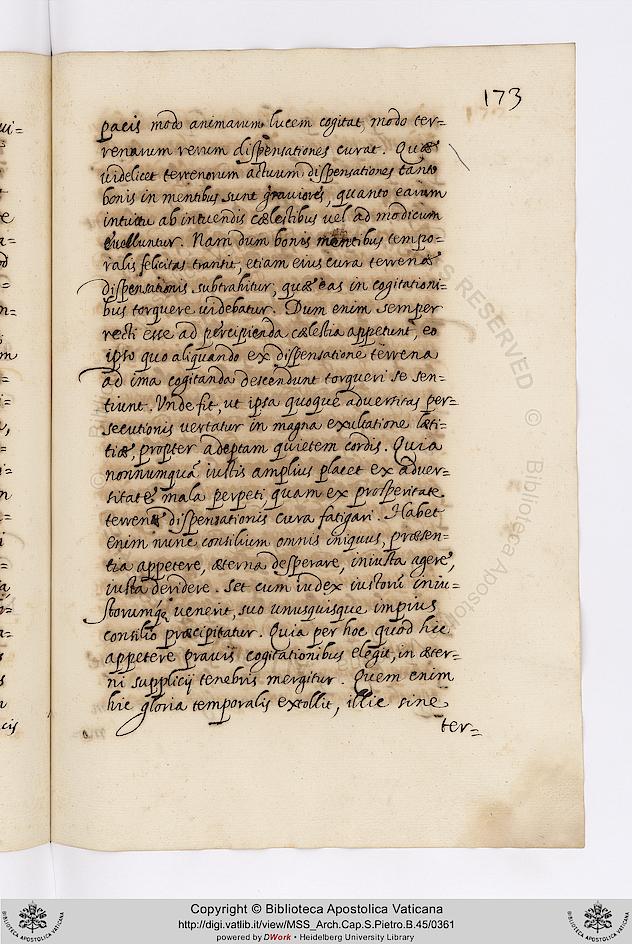 173
pacis modo animarum lucem cogitat, modo ter=
renarum rerum dispensationes curat. Quæ
uidelicet terrenorum actuum dispensationes tanto
bonis in mentibus sunt graviores, quanto earum
intuitu ab intuendis cælestibus uel ad modicum
euelluntur. Nam dum bonis mentibus tempo=
ralis felicitas transit, etiam eius cura terrenæ
dispensationis subtrahitur, quæ eas in cogitationi=
bus torquere uidebatur. Dum enim semper
recti esse ad percipienda cælestia appetunt, eo
ipso quo aliquando ex dispensatione terrena
ad ima cogitanda descendunt torqueri se sen=
tiunt. Unde fit, ut ipsa quoque adversitas per=
secutionis vertatur in magna exultatione læti=
tiæ, propter adeptam quietem cordis. Quia
nonnumquã iustis amplius placet ex adver=
sitate mala perpeti, quam ex prosperitate
terrenæ dispensationis cura fatigari. Habet
enim nunc consilium omnis iniquus, præsen=
tia appetere, æterna desperare, iniusta agere,
iusta deridere. Set cum iudex iustorũ iniu=
storumq; venerit, suo unusquisque impius
consilio præcipitatur. Quia per hoc quod hic
appetere pravis cogitationibus elegit, in æter=
ni supplicij tenebris mergitur. Quem enim
hic gloria temporalis extollit, illic sine
ter=
cis
RESERVED © Biblioteca Apostolica
Copyright © Biblioteca Apostolica Vaticana
http://digi.vatlib.it/view/MSS_Arch.Cap.S.Pietro.B.45/0361
powered by DWork • Heidelberg University Library
BIBLIOTECA APOSTOLICA VATICANA
BIBLIOTECA APOSTOLICA VATICANA